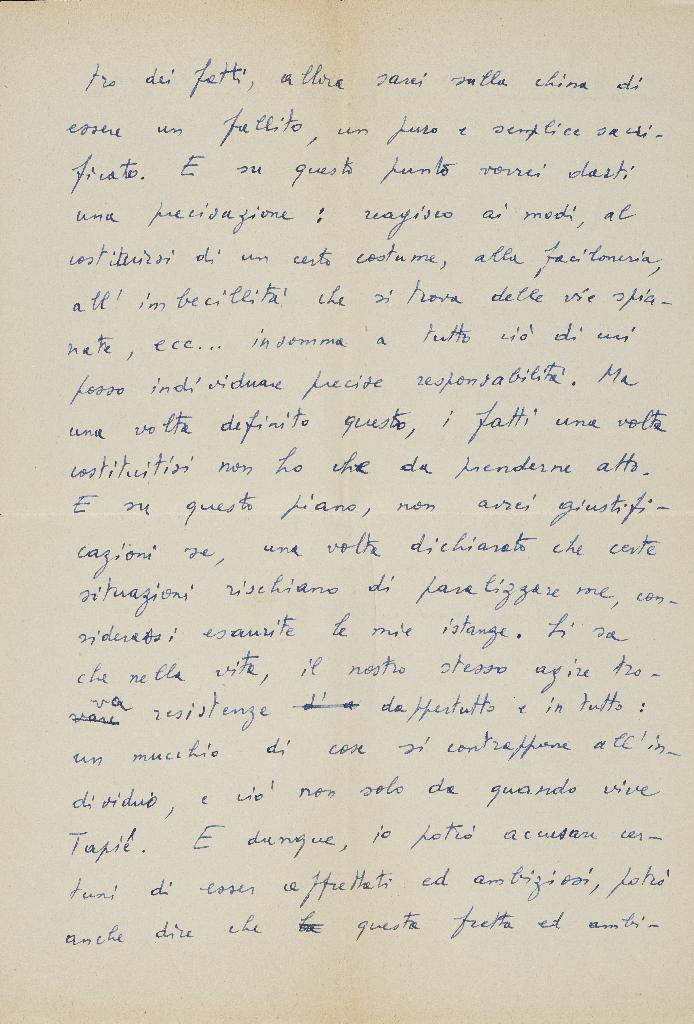 tro dei fatti, allora sarei sulla china di
essere un fallito, un puro e semplice sacri-
ficato. E su questo punto vorrei darti
una precisazione : reagisco ai modi, al
costituirsi di un certo costume, alla faciloneria,
all' imbecillità che si trova delle vie spia-
nate, ecc... insomma a tutto ciò di cui
posso individuare precise responsabilità. Ma
una volta definito questo, i fatti una volta
costituitisi non ho che da prenderne atto.
E su questo piano, non avrei giustifi-
cazioni se, una volta dichiarato che certe
situazioni rischiano di paralizzare me, con-
siderassi esaurite le mie istanze. Si sa
che nella vita, il nostro stesso agire tro-
va resistenze dappertutto e in tutto :
un mucchio di cose si contrappone all'in-
dividuo, e ciò non solo da quando vive
Tapié. E dunque, io potrò accusare cer-
tuni di esser affrettati ed ambiziosi, potrò
anche dire che questa fretta ed ambi-